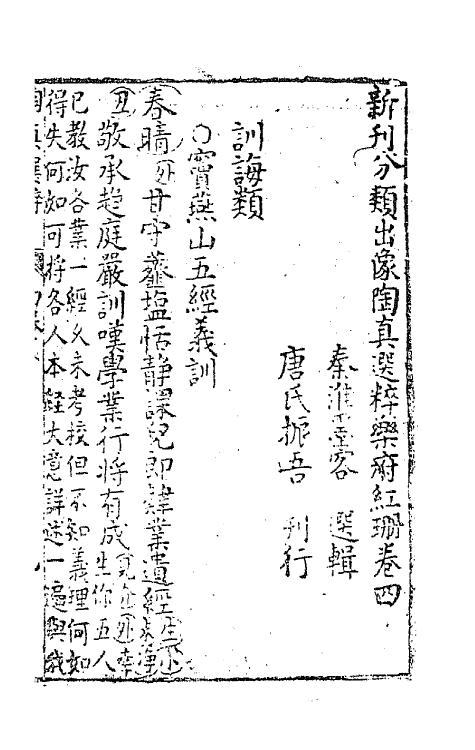 新刊分類出像陶真選粹樂府紅珊卷四
秦淮墨客 選輯
唐氏振吾 刊行
訓誨類
○竇燕山五經義訓
春晴外甘守虀塩恬靜課兒郎肄業遺經
丑敬承趨庭嚴訓嘆學業行將有成
生你五人
已教汝各業一經久未考校但不知義理何如
得失何如可將各人本經大意詳述一遍與我